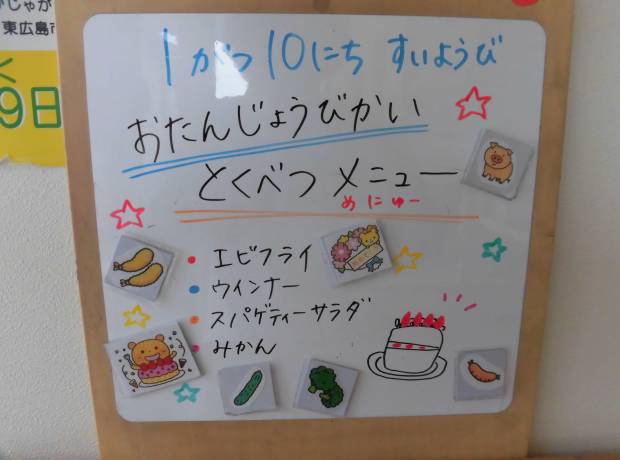 じゃが
東広島市
く
9日
1がつ10にち すいようび
おたんじょうびかい
とくべつ メニュー
めにゅー
・エビフライ
・ウインナー
・スパゲティーサラダ
・みかん